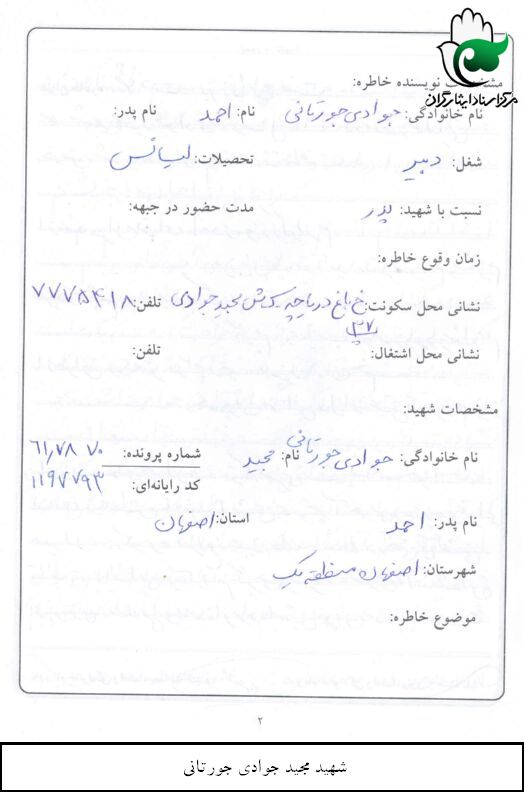 مرکز اسناد ایثارگران
مشخصات نویسنده خاطره:
نام خانوادگی: جوادی جورتانی نام: احمد نام پدر:
شغل: دبیر تحصیلات: لیسانس
نسبت با شهید: پدر مدت حضور در جبهه:
زمان وقوع خاطره:
نشانی محل سکونت: خ باغ دریاچه ک ش مجید جوادی تلفن: ۷۷۷۵۴۱۸
پ ۳۷
نشانی محل اشتغال: تلفن:
مشخصات شهید:
نام خانوادگی: جوادی جورتانی نام: مجید شماره پرونده: ۶۱٫۷۸ ۷۰
کد رایانه‌ای: ۱۱۹۷۷۹۳
نام پدر: احمد استان: اصفهان
شهرستان: اصفهان منطقه یک
موضوع خاطره:
۲
شهید مجید جوادی جورتانی